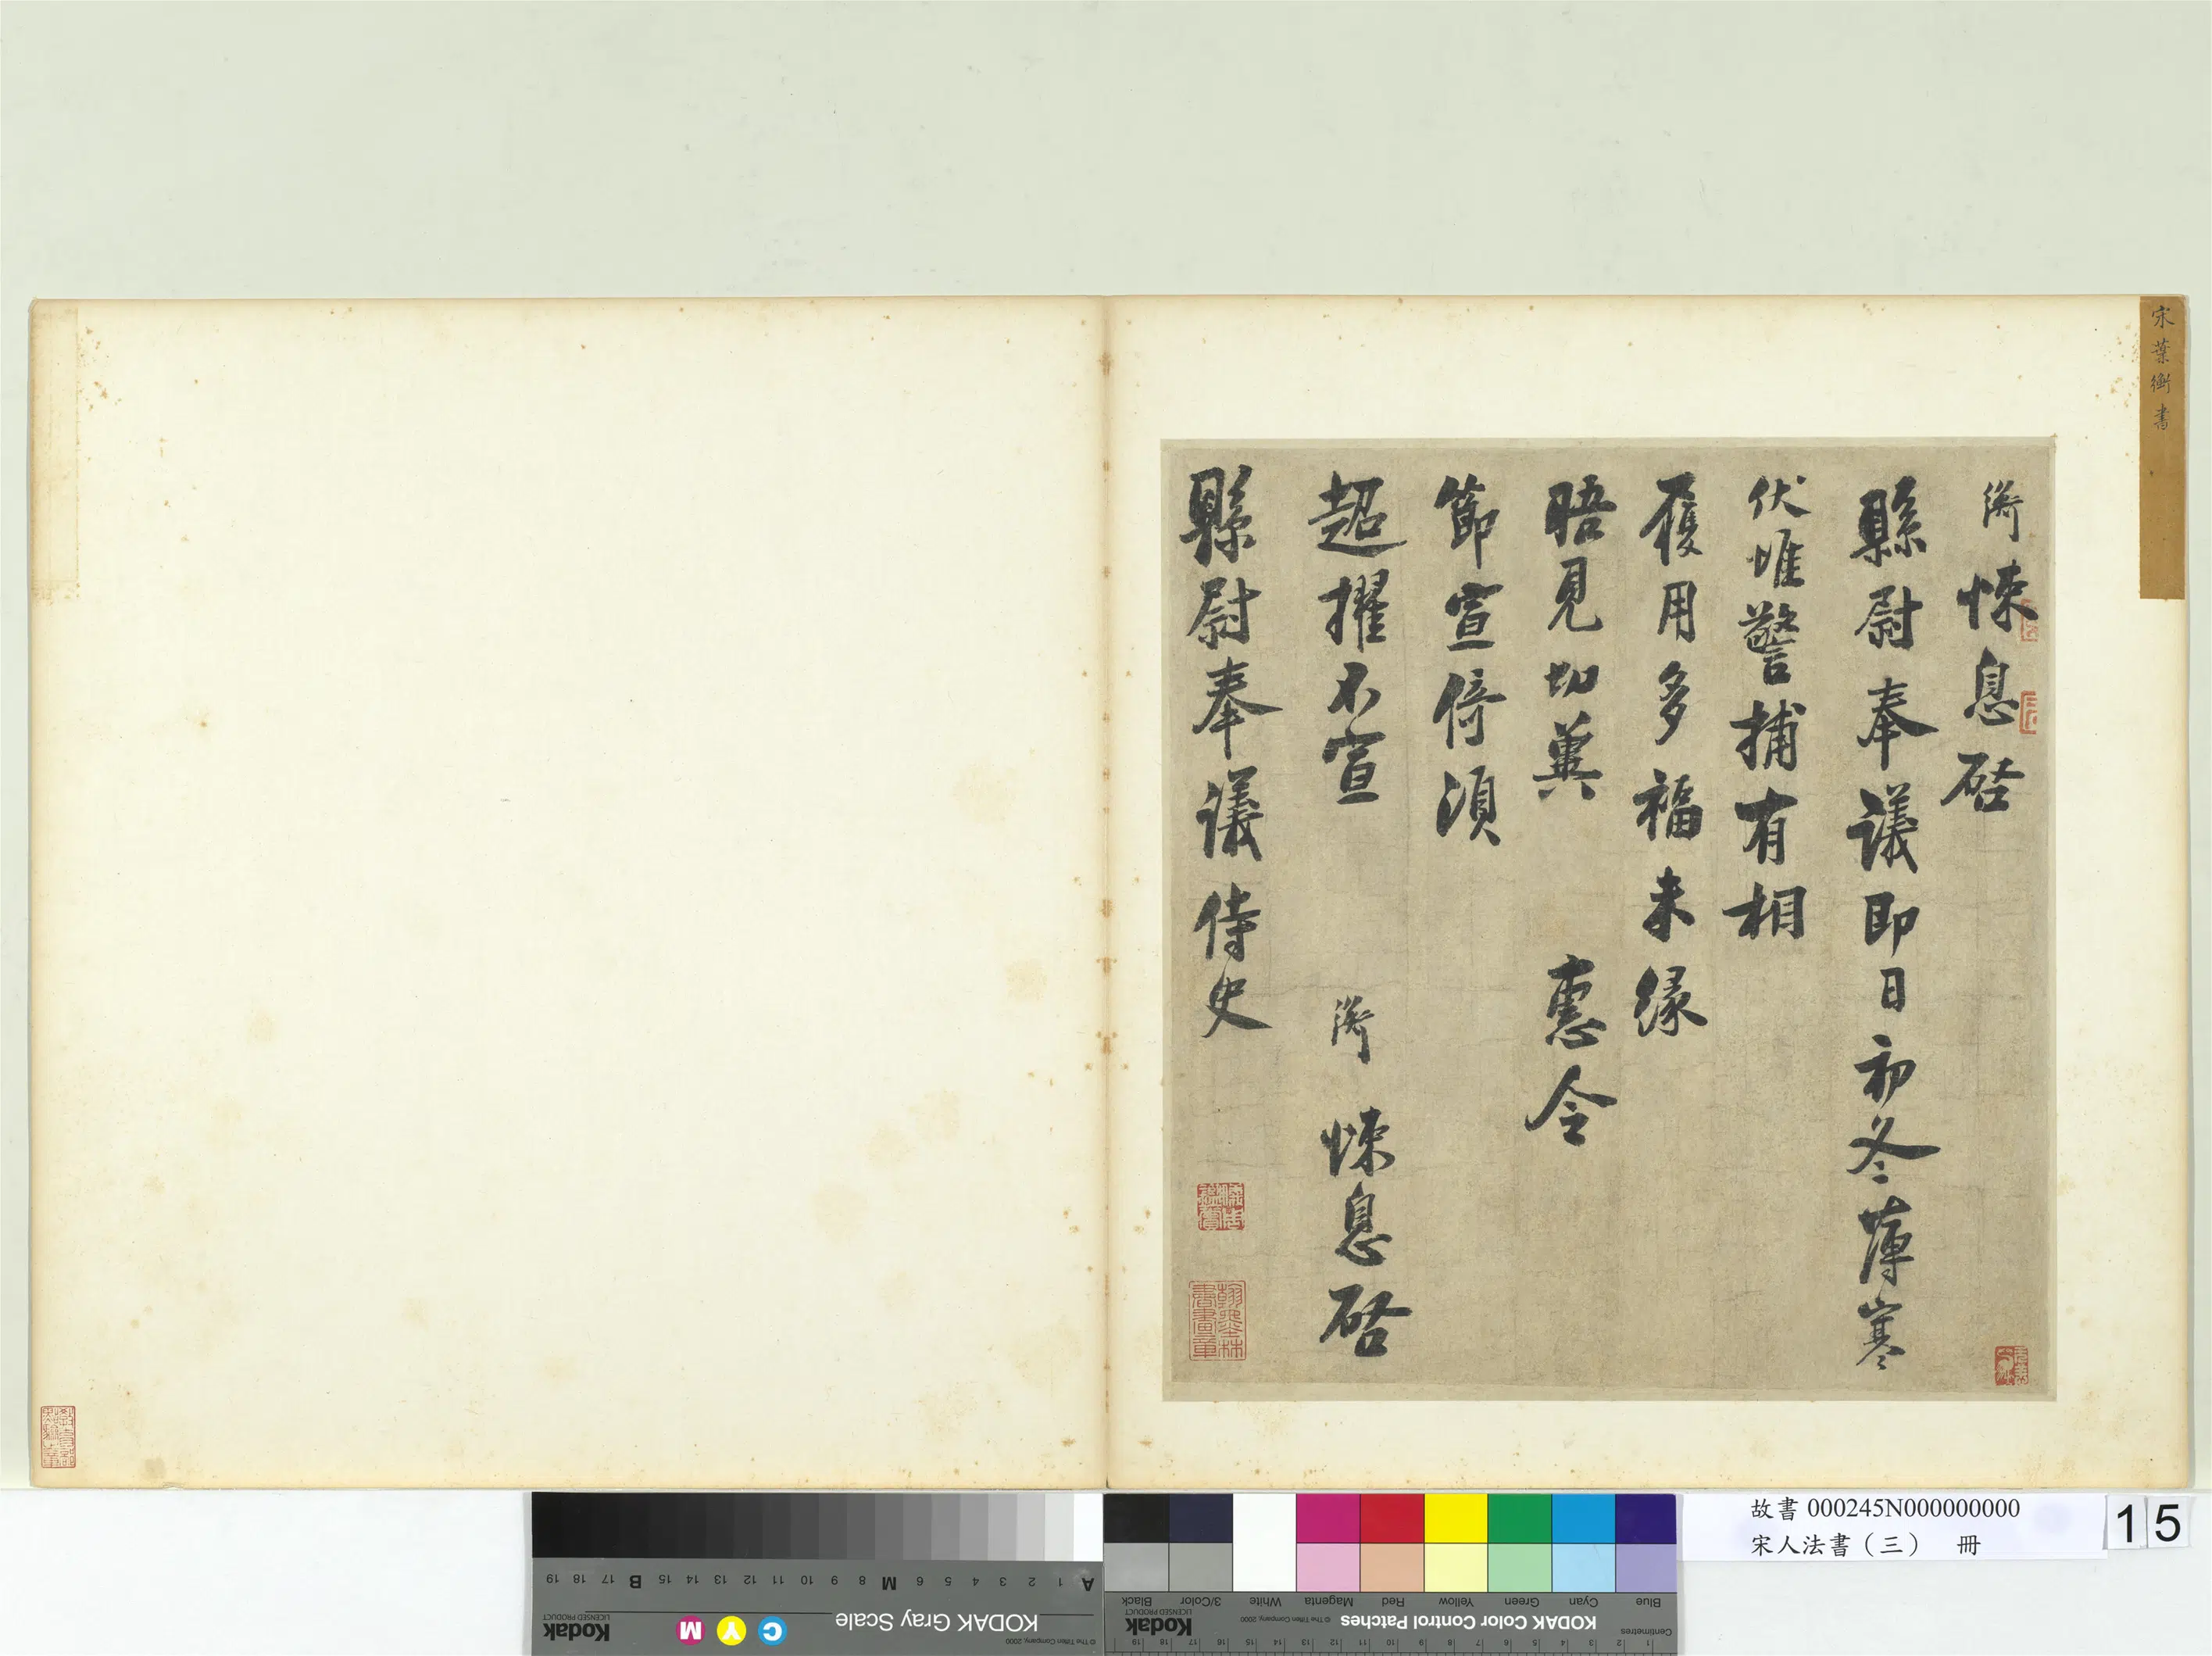 宋葉衡書
衡悚息啓
縣尉奉議即日初冬薄寒
伏惟警捕有相
履用多福未緣
晤見切冀 專令
節宣倚須
超擢不宣 衡悚息啓
縣尉奉議侍史
翰墨林書畫章
故書 000245N000000000
宋人法書（三） 冊
15
KODAK Gray Scale
© The Tiffen Company, 2000
Kodak
LICENSED PRODUCT
C Y M
A 1 2 3 4 5 6 M 8 9 10 11 12 13 14 15 B 17 18 19
KODAK Color Control Patches
© The Tiffen Company, 2000
Kodak
LICENSED PRODUCT
Blue Cyan Green Yellow Red Magenta White 3/Color Black
Centimetres